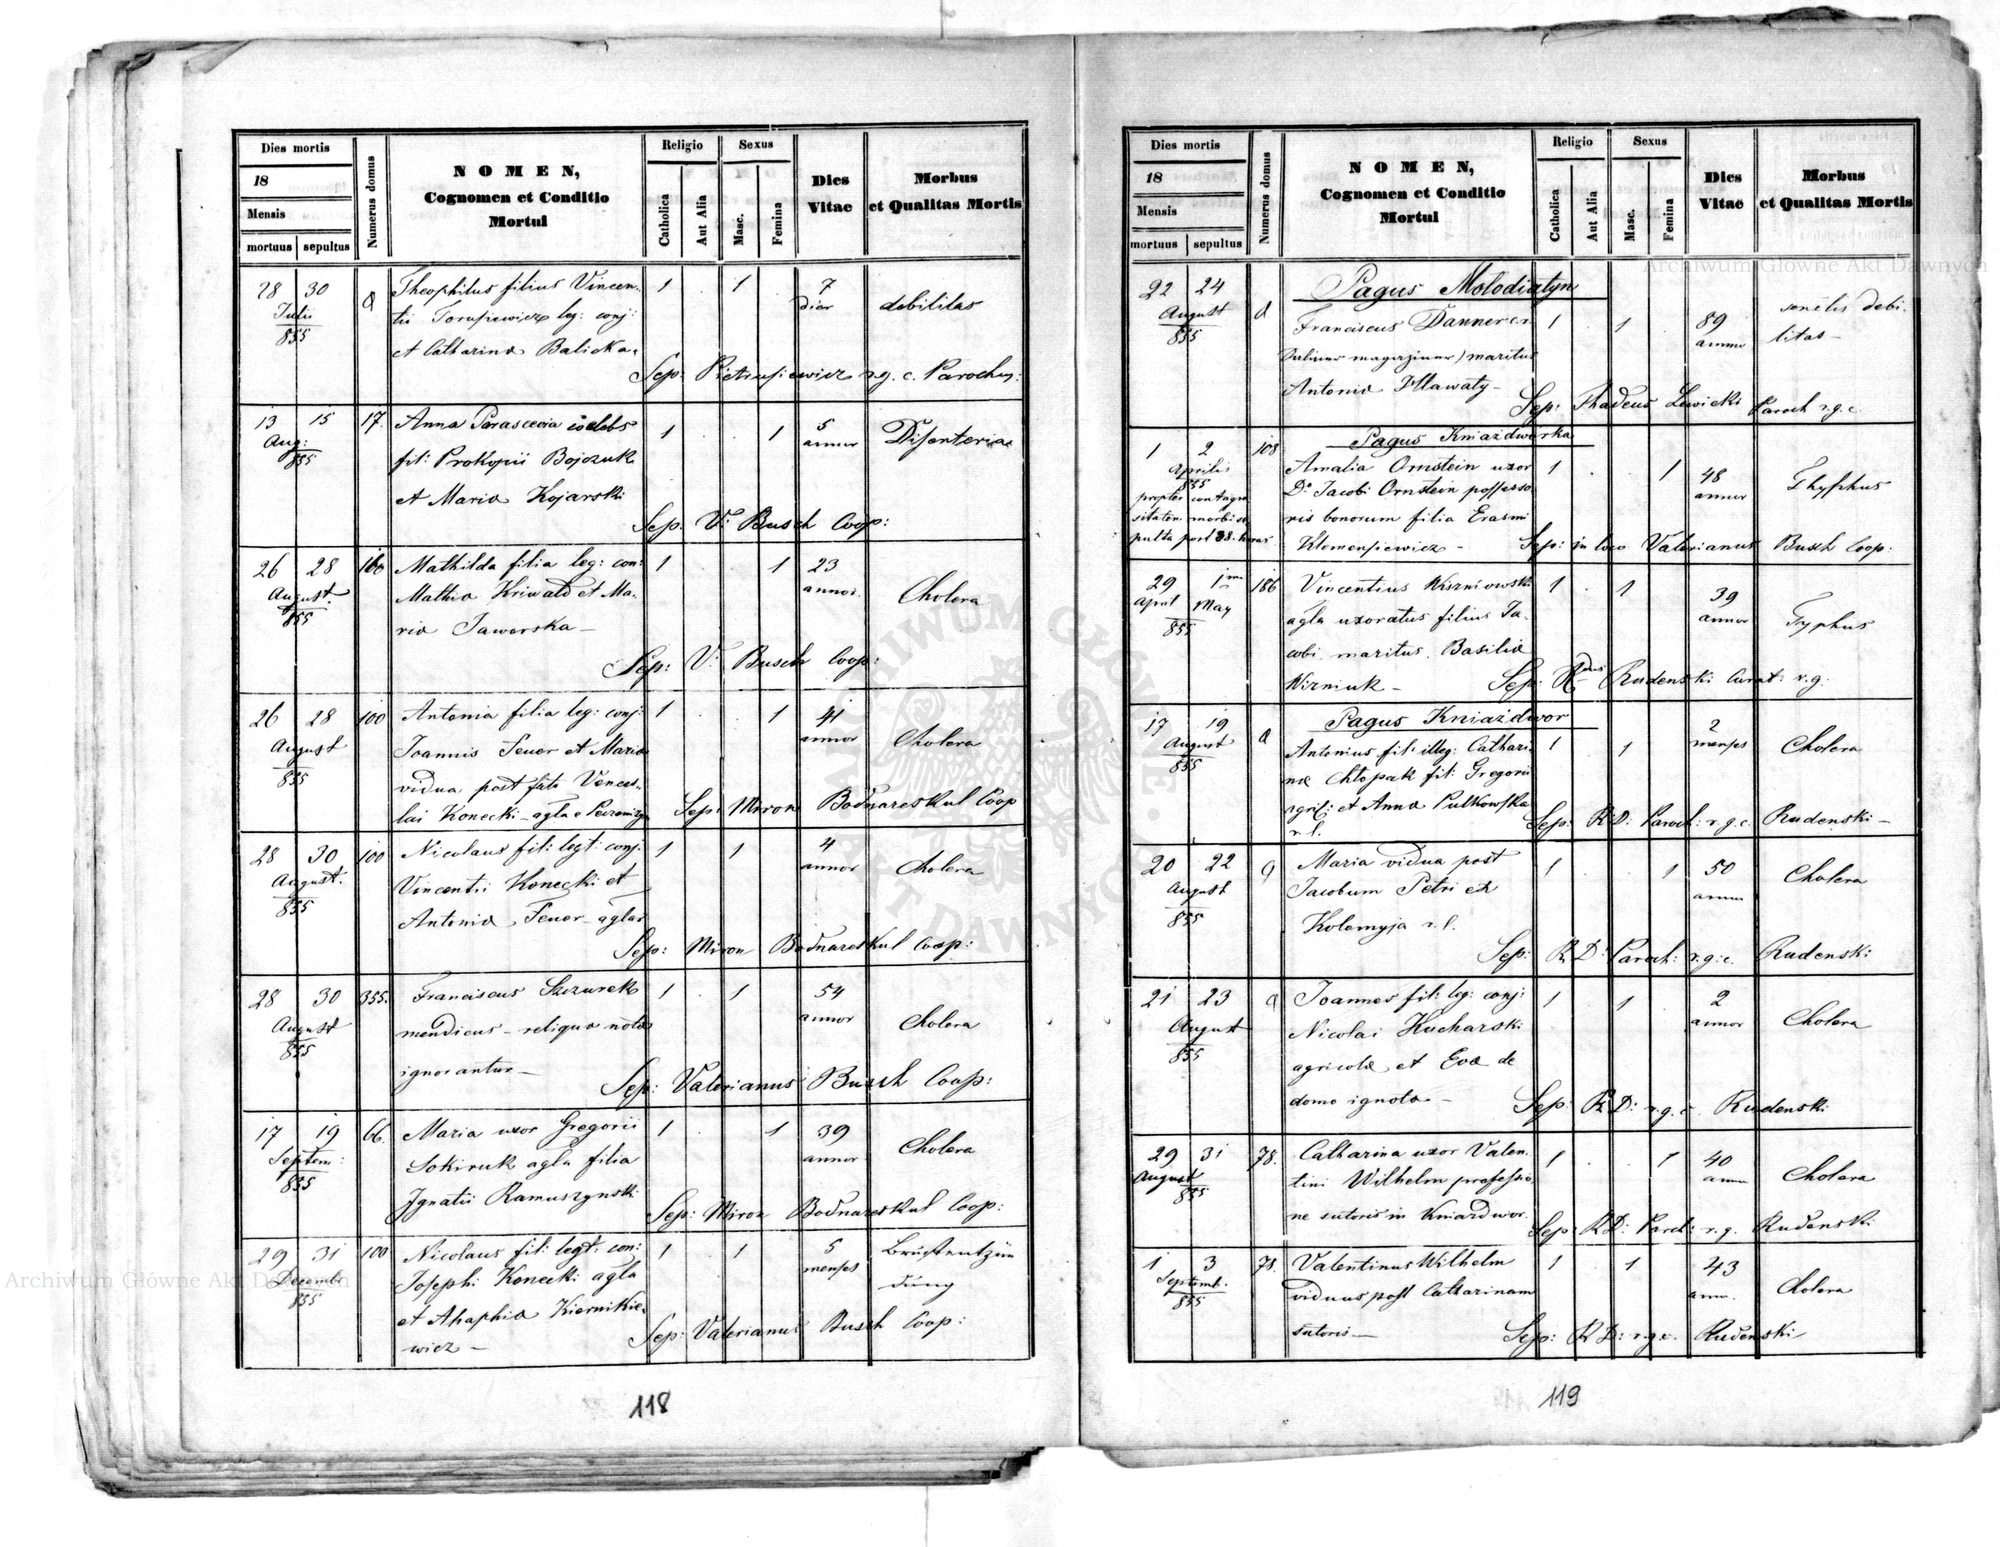 Dies mortis
18
Mensis
mortuus sepultus
Numerus domus
NOMEN,
Cognomen et Conditio
Mortui
Religio
Catholica
Aut Alia
Sexus
Masc.
Femina
Dies
Vitae
Morbus
et Qualitas Mortis
28 30 Theophilus filius Vincen- 1 . 1 7
Julii
855
leg: conj: dier debilitas
et Catharina Balicka.
Sep: Pietrusiewicz r.g. c. Parochus:
13 15 17. Anna Parascevia 1 . . 1 5
Aug:
855
fil: Prokopii Bojczuk annor Disenteria
et Maria Kojarski
Sep: V: Busch Coop:
26 28 100 Mathilda filia leg: con: 1 . . 1 23
August.
855
Mathia Kriwald et Ma- annor. Cholera
ria Jaworska —
Sep: V: Busch Coop:
26 28 100 Antonia filia leg: conj: 1 . . 1 41
August
855
Joannis Feuer et Maria annor Cholera
vidua post fata Vences-
lai Konecki - agla
Sep: Miron Bodnareskul Coop
28 30 100 Nicolaus fil: legt: conj: 1 . 1 4
August.
855
Vincentii Konecki et annor Cholera
Antonia Feuer - aglar
Sep: Miron Bodnareskul Coop:
28 30 355. Franciscus Szczurek 1 . 1 54
August
855
mendicus - reliqua nota annor Cholera
ignorantur —
Sep: Valerianus Busch Coop:
17 19 66. Maria uxor Gregorii 1 . 1 39
Septem:
855
Sokiruk agla filia annor Cholera
Ignatii Ramuszynski
Sep: Miron Bodnareskul Coop:
29 31 100 Nicolaus fil: legt: con: 1 . 1 5
Decemb
855
Josephi Konecki agla menses Brustentzün
dung
et Ahaphia Kiernikie-
wicz —
Sep: Valerianus Busch Coop:
118
Dies mortis
18
Mensis
mortuus sepultus
Numerus domus
NOMEN,
Cognomen et Conditio
Mortui
Religio
Catholica
Aut Alia
Sexus
Masc.
Femina
Dies
Vitae
Morbus
et Qualitas Mortis
22 24 Pagus Molodiatyn
August
855
Franciscus Danner 1 . 1 . 89 senilis debi-
maritus annor litas —
Antonia Hlawaty —
Sep: Thadeus Lewicki Paroch r.g.c.
1 2 108 Pagus Kniaźdworka
Aprilis
855
Amalia Ornstein uxor 1 . . 1 48
propter contagio
Do Jacobi Ornstein possesso annor Thyphus
sitatem morbi se-
ris bonorum filia Erasmi
pulta post 38. horas
Klemensiewicz —
Sep: in loco Valerianus Busch Coop:
29 1ma 186 Vincentius Wiszniowski 1 . 1 39
April May
855
agla uxoratus filius Ja- annor Typhus
cobi maritus Basilia
Wizniuk —
Sep: Rdus Rudenski Curat: r.g.
17 19 Pagus Kniaźdwor
August
855
Antonius fil: illeg: Cathari- 1 . 1 2 menses Cholera
na Chłopak fil: Gregorii
et Anna Pulkowska
r.l.
Sep: R.D: Paroch: r.g.c. Rudenski —
20 22 Maria vidua post 1 . . 1 50
August
855
Jacobum Petri ex annor Cholera
Kolomyja r.l.
Sep: R.D: Paroch: r.g.c. Rudenski
21 23 Joannes fil: leg: conj: 1 . 1 2
August
855
Nicolai Kucharski annor Cholera
agricola et Eva de
domo ignota —
Sep: R.D: r.g.c. Rudenski
29 31 78. Catharina uxor Valen- 1 . . 1 40
August
855
tini Wilhelm professio- annor Cholera
ne sutoris in Kniaźdwor.
Sep: R.D: Paroch: r.g. Rudenski
1 3 78. Valentinus Wilhelm 1 . 1 43
Septemb.
855
viduus post Catharinam ann. Cholera
sutoris —
Sep: R.D: r.g.c. Rudenski
119
Archiwum Główne Akt Dawnych
Archiwum Główne Akt Dawnych
ARCHIWUM GŁÓWNE AKT DAWNYCH